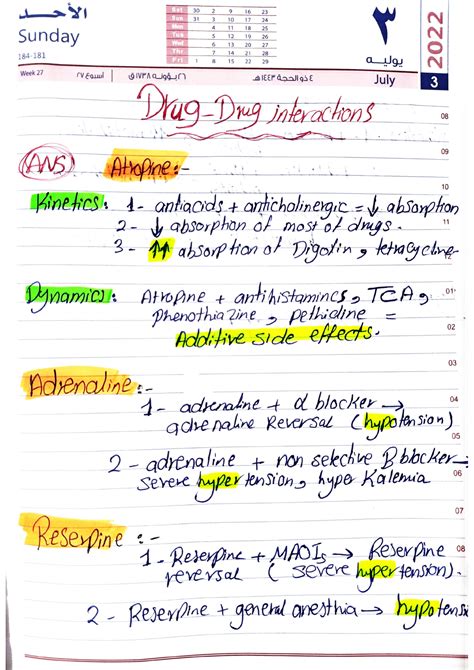 الأحد
Sunday
184-181
Sat 30 2 9 16 23
Sun 31 3 10 17 24
Mon 4 11 18 25
Tue 5 12 19 26
Wed 6 13 20 27
Thu 7 14 21 28
Fri 1 8 15 22 29
٣
يوليــه
2022
Week 27
أسبوع ٢٧
٢٦ بؤونه ١٧٣٨ق
٤ ذو الحجة ١٤٤٣هـ
July
3
Drug-Drug interactions
08
09
(ANS) Atropine:-
10
Kinetics: 1- antiacids + anticholinergic = ↓ absorption
11
2- ↓ absorption of most of drugs.
12
3- ↑↑ absorption of Digoxin, tetracycline
01
Dynamics: Atropine + antihistamines, TCA,
02
phenothiazine, pethidine =
Additive side effects.
03
Adrenaline:-
04
1- adrenaline + α blocker →
adrenaline Reversal (hypotension)
05
2- adrenaline + non selective B blocker →
severe hypertension, hyper Kalemia
06
07
Reserpine :-
1- Reserpine + MAOIs → Reserpine
08
reversal ( severe hypertension).
09
2- Reserpine + general anesthia → hypotens